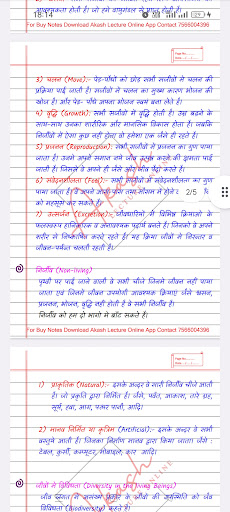 आवश्यकता होती है। जो हमे वायुमंडल से प्राप्त होती है।
18:14
For Buy Notes Download Akash Lecture Online App Contact 7566004396
3) चलन (Move):- पेड़-पौधों को छोड़ सभी सजीवों में चलन की
प्रक्रिया पाई जाती है। सजीवों में चलन का मुख्य कारण भोजन की
खोज है। और पेड़-पौधे अपना भोजन स्वयं बना लेते है।
4) वृद्धि (Growth): सभी सजीवों में वृद्धि होती है। उम्र बढ़ने के
साथ-साथ उनका शारीरिक और मानसिक विकास होता है। जबकि
निर्जीवों में ऐसा कुछ नहीं होता वो हमेशा एक जैसे ही रहते है।
5) प्रजनन (Reproduction): सभी सजीवों में प्रजनन का गुण पाया
जाता है। उनमें अपने समान नये जीव उत्पन्न करने की क्षमता पाई
जाती है। जिससे वे अपने ही जैसे और जीव पैदा करते है।
6) संवेदनशीलता (Feel):- सभी सजीवों में संवेदनशीलता का गुण
पाया जाता है। वे अपने आसपास
2/5
को महसूस कर सकते है।
7) उत्सर्जन (Excretion):- जीवधारियों में विभिन्न क्रियाओं के
फलस्वरूप हानिकारक व अनावश्यक पदार्थ बनते है। जिनको वे अपने
शरीर से निष्कासित करते रहते है। यह क्रिया जीवों में निरन्तर व
जीवन-पर्यन्त चलती रहती है।
निर्जीव (Non-living)
पृथ्वी पर पाई जाने वाली वे सभी चीजें जिनमे जीवन नहीं पाया
जाता एवं जिनमे जीवन उपयोगी आवश्यक क्रियाएं जैसे श्वसन,
प्रजनन, भोजन, वृद्धि नहीं होती है वे सभी निर्जीव है।
निर्जीव को हम दो भागो मे बाँट सकते हैं।
For Buy Notes Download Akash Lecture Online App Contact 7566004396
1) प्राकृतिक (Natural):- इसके अन्दर वे सारी निर्जीव चीजे आती
है। जो प्रकृति द्वारा निर्मित है। जैसे, पर्वत, आकाश, तारे ग्रह,
सूर्य, हवा, आग, पत्थर पानी, आदि।
2) मानव निर्मित या कृत्रिम (Artificial):- इसके अन्दर वे सभी
वस्तुये आती है। जिनका निर्माण मानव द्वारा किया जाता। जैसे :
टेबल, कुर्सी, कम्प्यूटर, मोबाइल, कार आदि।
जीवों मे विविधता (Diversity in the living Beings)
जीव जगत में असंख्य प्रकार के जीवों की उपस्थिति को जैव
विविधता (Biodiversity) कहते है